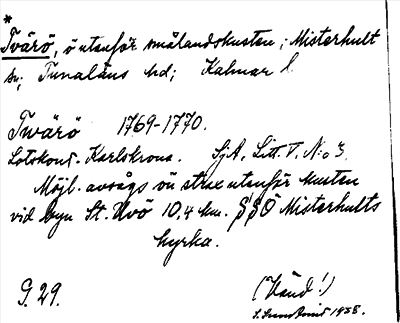 *
Tvärö, ö utenför smålandskusten; Misterhult
sn; Tunaläns hd; Kalmar l.
Twärö 1769-1770.
Lotskont. Karlskrona. SjA, Litt. T. N:o 3.
Möjl. avsågs ön strax utenför kusten
vid byn St. Uvö 10,4 km. SSÖ Misterhults
kyrka.
G. 29.
(Vänd!)
1938.